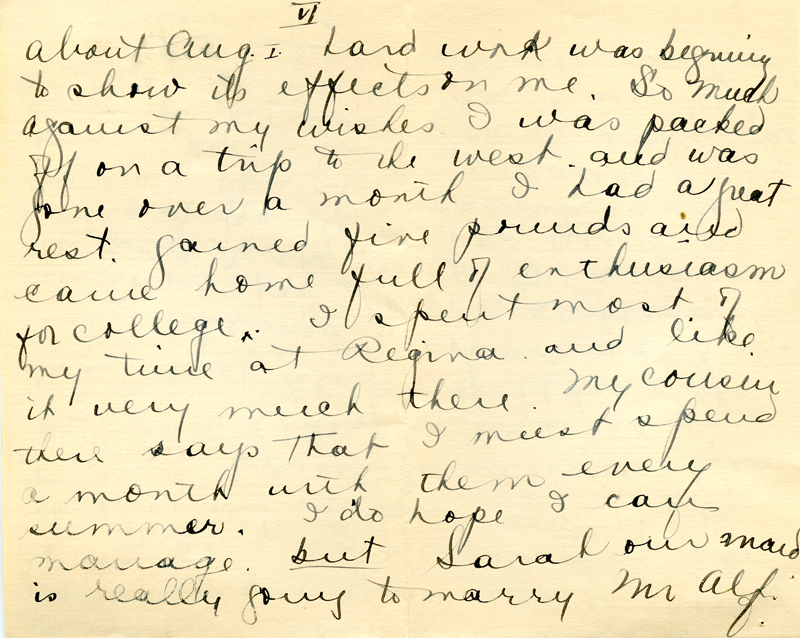 VI
about Aug. 1. hard work was begining
to show its effects on me. So much
against my wishes I was packed
off on a trip to the west. and was
gone over a month I had a great
rest. gained five pounds and
came home full of enthusiasm
for college. I spent most of
my time at Regina. and like
it very much there. My cousin
there says that I must spend
a month with them every
summer. I do hope I can
manage. but Sarah our maid
is really going to marry Mr Alf.